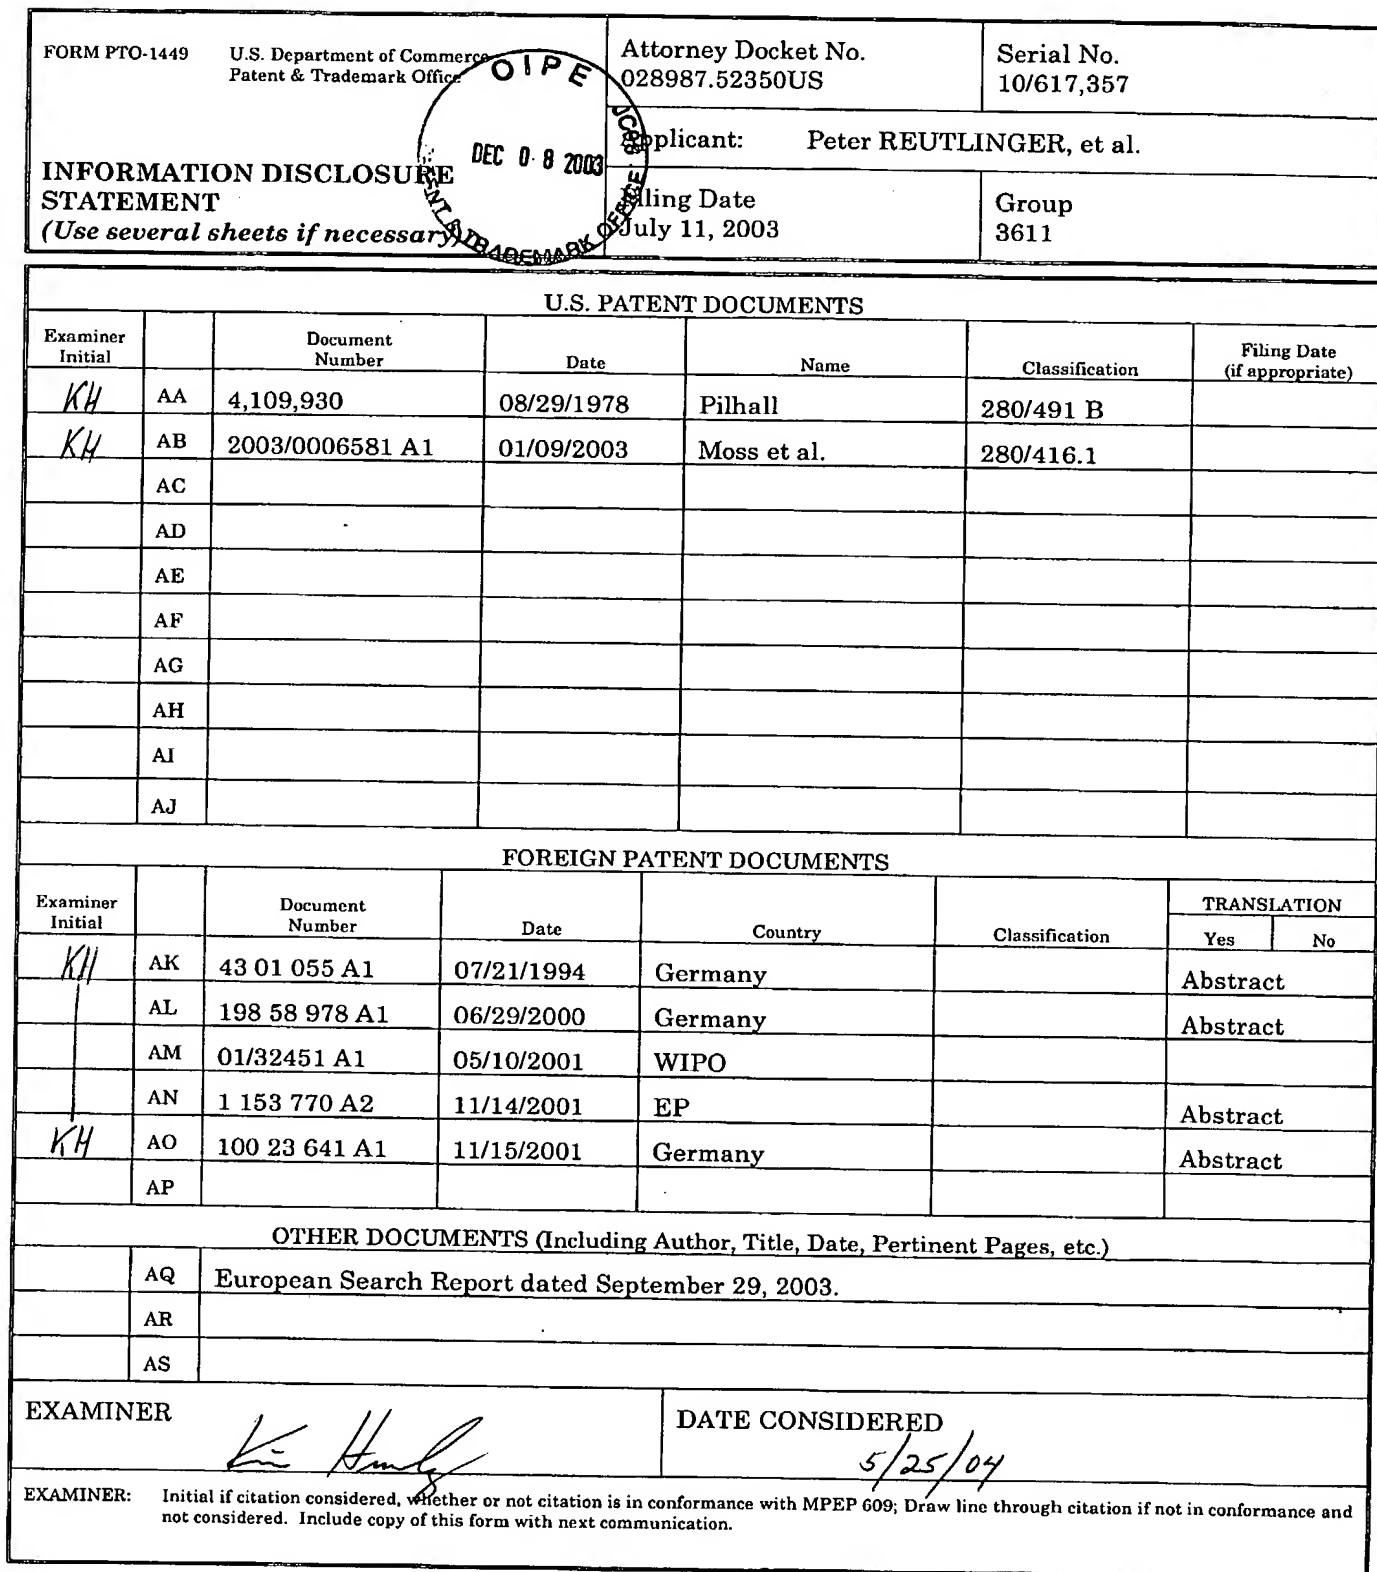 FORM PTO-1449 U.S. Department of Commerce
Patent & Trademark Office
INFORMATION DISCLOSURE
STATEMENT
(Use several sheets if necessary)
OIPE
DEC 0 8 2003
TRADEMARK OFFICE
Attorney Docket No.
028987.52350US
Serial No.
10/617,357
Applicant: Peter REUTLINGER, et al.
Filing Date
July 11, 2003
Group
3611
U.S. PATENT DOCUMENTS
Examiner Initial Document Number Date Name Classification Filing Date (if appropriate)
KH AA 4,109,930 08/29/1978 Pilhall 280/491 B
KH AB 2003/0006581 A1 01/09/2003 Moss et al. 280/416.1
AC
AD
AE
AF
AG
AH
AI
AJ
FOREIGN PATENT DOCUMENTS
Examiner Initial Document Number Date Country Classification TRANSLATION Yes No
KH AK 43 01 055 A1 07/21/1994 Germany Abstract
AL 198 58 978 A1 06/29/2000 Germany Abstract
AM 01/32451 A1 05/10/2001 WIPO
AN 1 153 770 A2 11/14/2001 EP Abstract
KH AO 100 23 641 A1 11/15/2001 Germany Abstract
AP
OTHER DOCUMENTS (Including Author, Title, Date, Pertinent Pages, etc.)
AQ European Search Report dated September 29, 2003.
AR
AS
EXAMINER
DATE CONSIDERED
5/25/04
EXAMINER: Initial if citation considered, whether or not citation is in conformance with MPEP 609; Draw line through citation if not in conformance and
not considered. Include copy of this form with next communication.